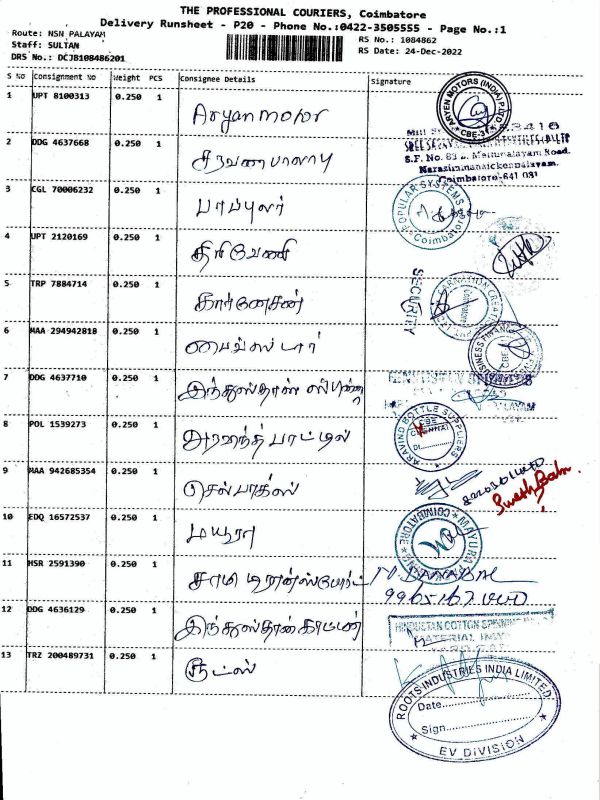 THE PROFESSIONAL COURIERS, Coimbatore
Delivery Runsheet - P20 - Phone No.:0422-3505555 - Page No.:1
Route: NSN PALAYAM
RS No.: 1084862
Staff: SULTAN
RS Date: 24-Dec-2022
DRS No.: DCJB108486201
S No Consignment No Weight PCS Consignee Details Signature
1 UPT 8100313 0.250 1 Aryan motor
ARYEN MOTORS (INDIA) P LTD
CBE-3
2 DDG 4637668 0.250 1 சரவணபாலாபு
S.F. No. 83 Mettupalayam Road,
Narasimmanaickenpalayam,
Coimbatore-641 031
3 CGL 70006232 0.250 1 பாப்புலர்
POPULAR SYSTEMS
Coimbatore
4 UPT 2120169 0.250 1 திரிவேணி
5 TRP 7884714 0.250 1 கார்னேசன்
CARNATION CREATIONS
SECURITY
6 MAA 294942818 0.250 1 பைவ்ஸ்டார்
BUSINESS FINANCE
CBE
7 DDG 4637710 0.250 1 இந்துஸ்தான் ஸ்பன்
8 POL 1539273 0.250 1 அரவிந்த் பாட்டில்
ARAVIND BOTTLE SUPPLIERS
CBE
CHENNAI
9 MAA 942685354 0.250 1 செல்பாக்ஸ்
10 EDQ 16572537 0.250 1 மயூரா
MAYURA
COIMBATORE
11 HSR 2591390 0.250 1 சாமி டிரான்ஸ்போர்ட்
12 DDG 4636129 0.250 1 இந்துஸ்தான் காட்டன்
HINDUSTAN COTTON SPINNING
MATERIAL
13 TRZ 200489731 0.250 1 ரூட்ஸ்
ROOTS INDUSTRIES INDIA LIMITED
Date
Sign
EV DIVISION